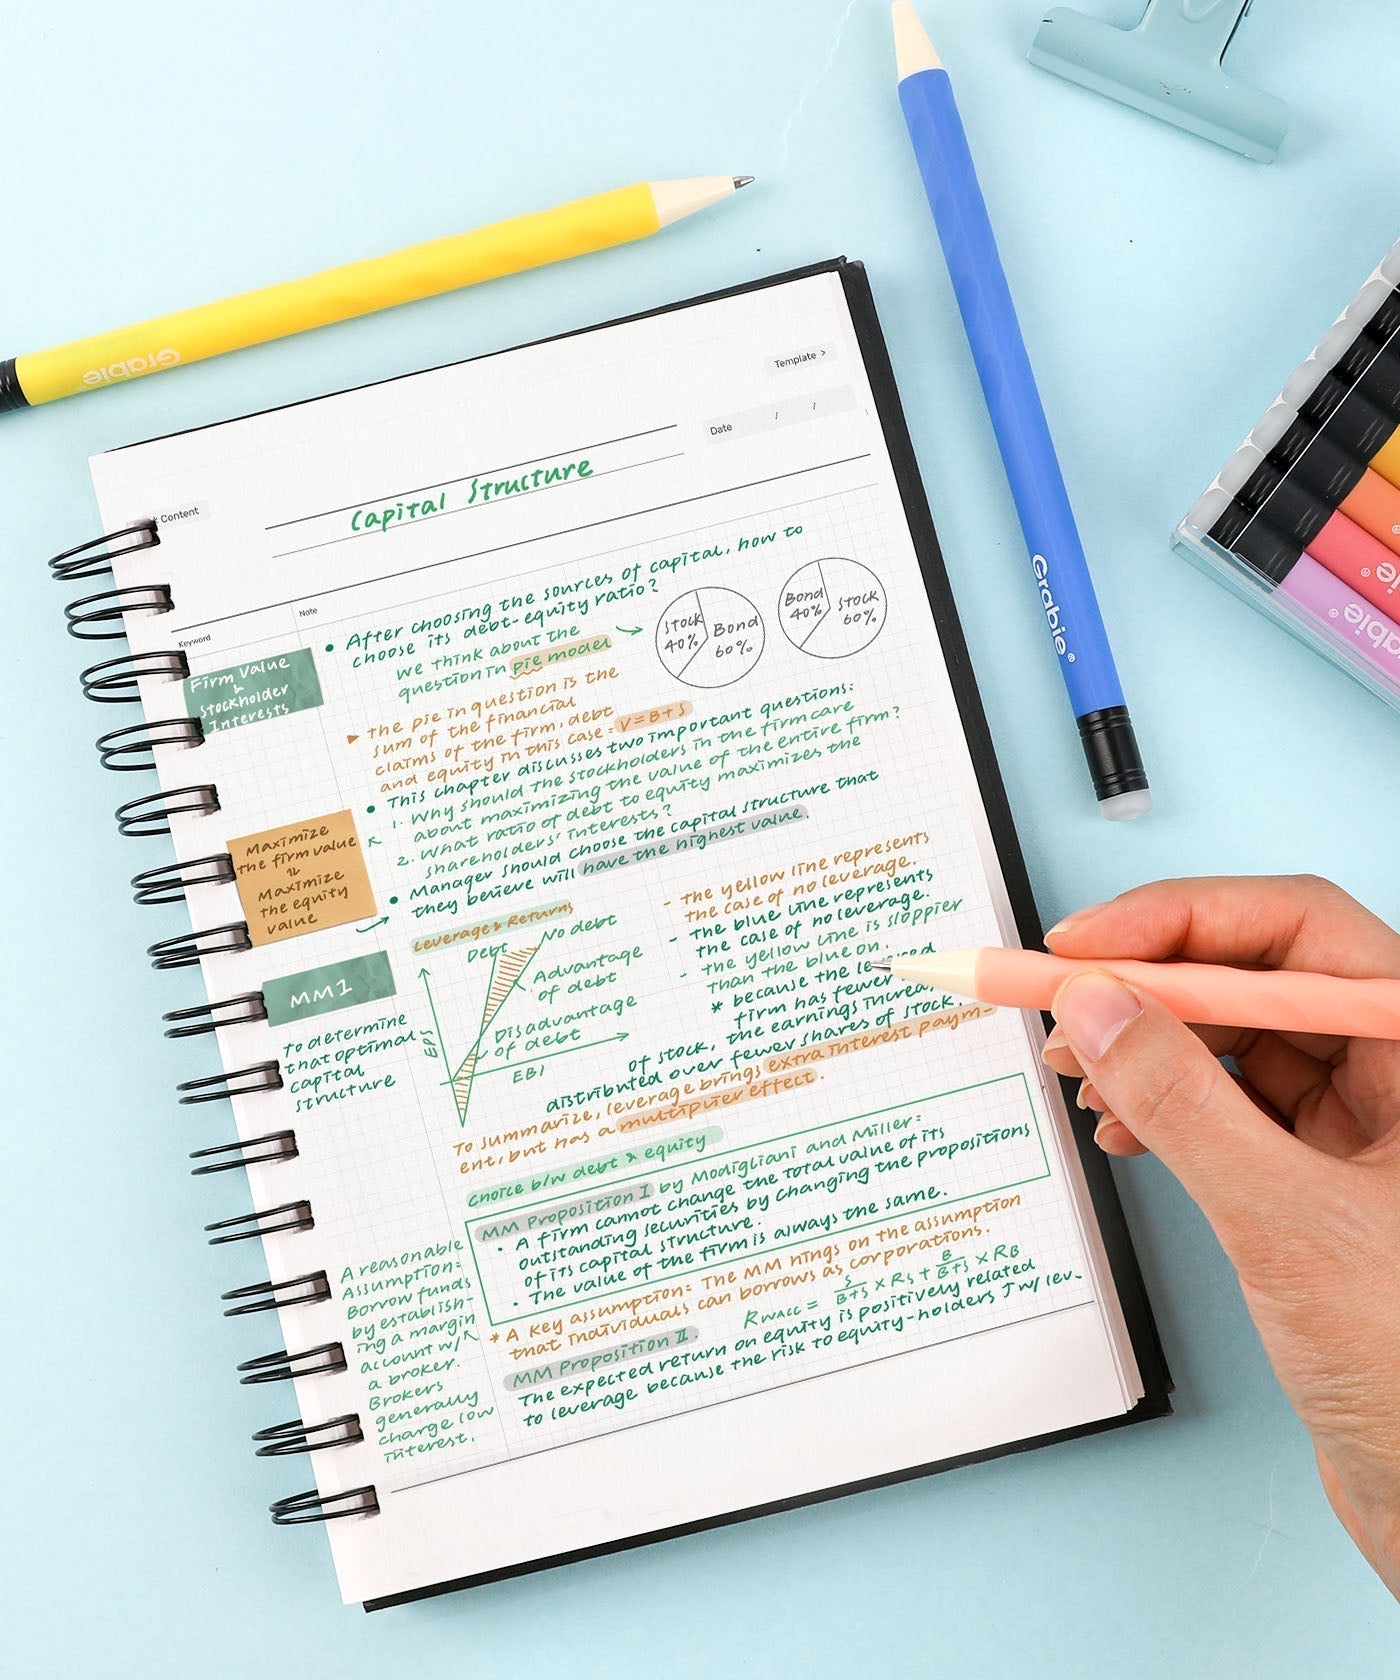 Grabie
Grabie®
Grabie®
Grabie®
Template >
Date / /
Content
Capital Structure
Keyword
Note
Firm Value
&
Stockholder
Interests
• After choosing the sources of capital, how to
choose its debt-equity ratio?
we think about the
question in pie model
Stock
40%
Bond
60%
Bond
40%
Stock
60%
▶ the pie in question is the
sum of the financial
claims of the firm, debt
and equity in this case = V = B + S
• This chapter discusses two important questions:
1. Why should the stockholders in the firm care
about maximizing the value of the entire firm?
2. What ratio of debt to equity maximizes the
shareholders' interests?
• Manager should choose the capital structure that
they believe will have the highest value.
Maximize
the firm value
=
Maximize
the equity
value
Leverage & Returns
Debt
No debt
Advantage
of debt
Disadvantage
of debt
EPS
EBI
- the yellow line represents
the case of no leverage.
- the blue line represents
the case of no leverage.
- the yellow line is sloppier
than the blue on.
* because the
firm has fewer
of stock, the earnings
distributed over fewer shares of stock.
To summarize, leverage brings extra interest paym-
ent, but has a multiplier effect.
MM1
To determine
that optimal
capital
structure
choice b/w debt & equity
MM Proposition I by Modigliani and Miller:
• A firm cannot change the total value of its
outstanding securities by changing the propositions
of its capital structure.
• The value of the firm is always the same.
* A key assumption: The MM hings on the assumption
that individuals can borrows as corporations.
A reasonable
Assumption:
Borrow funds
by establish-
ing a margin
account w/
a broker.
Brokers
generally
charge low
interest.
MM Proposition II.
RWACC = S/B+S × RS + B/B+S × RB
The expected return on equity is positively related
to leverage because the risk to equity-holders ↑ w/ lev-